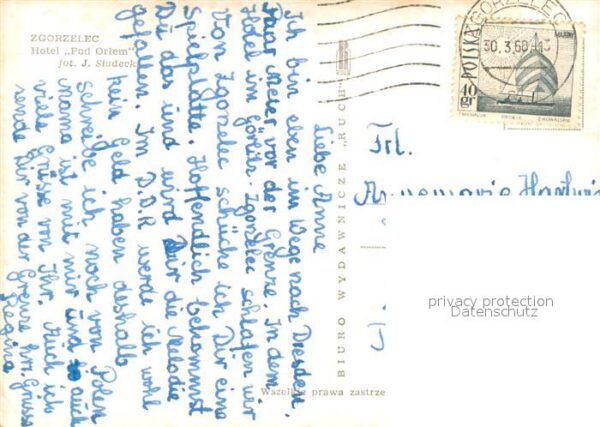 ZGORZELEC
Hotel „Pod Orłem”
fot. J. Siudecki
Liebe Annie
Ich bin eben im Wege nach Dresden.
Paar Meter vor der Grenze. In dem
Hotel im Görlitz-Zgorzelec schlafen wir
Von Zgorzelec schücke ich Dir eine
Spielplatte. Hoffendlich bekommst
Du das und wird Dir die Melodie
gefallen. Im D.D.R werde ich wohl
kein Geld haben deshalb
schreibe ich noch von Polen
mama ist mit mir und auch
viele Grüsse von Ihr. Auch ich
sende Dir von der Grenze hrz. Grüsse
Regina
BIURO WYDAWNICZE „RUCH”
Wszelkie prawa zastrze
ZGORZELEC
30. 3. 60
POLSKA
40 gr
Frl.
Annemarie Hartwi
privacy protection
Datenschutz